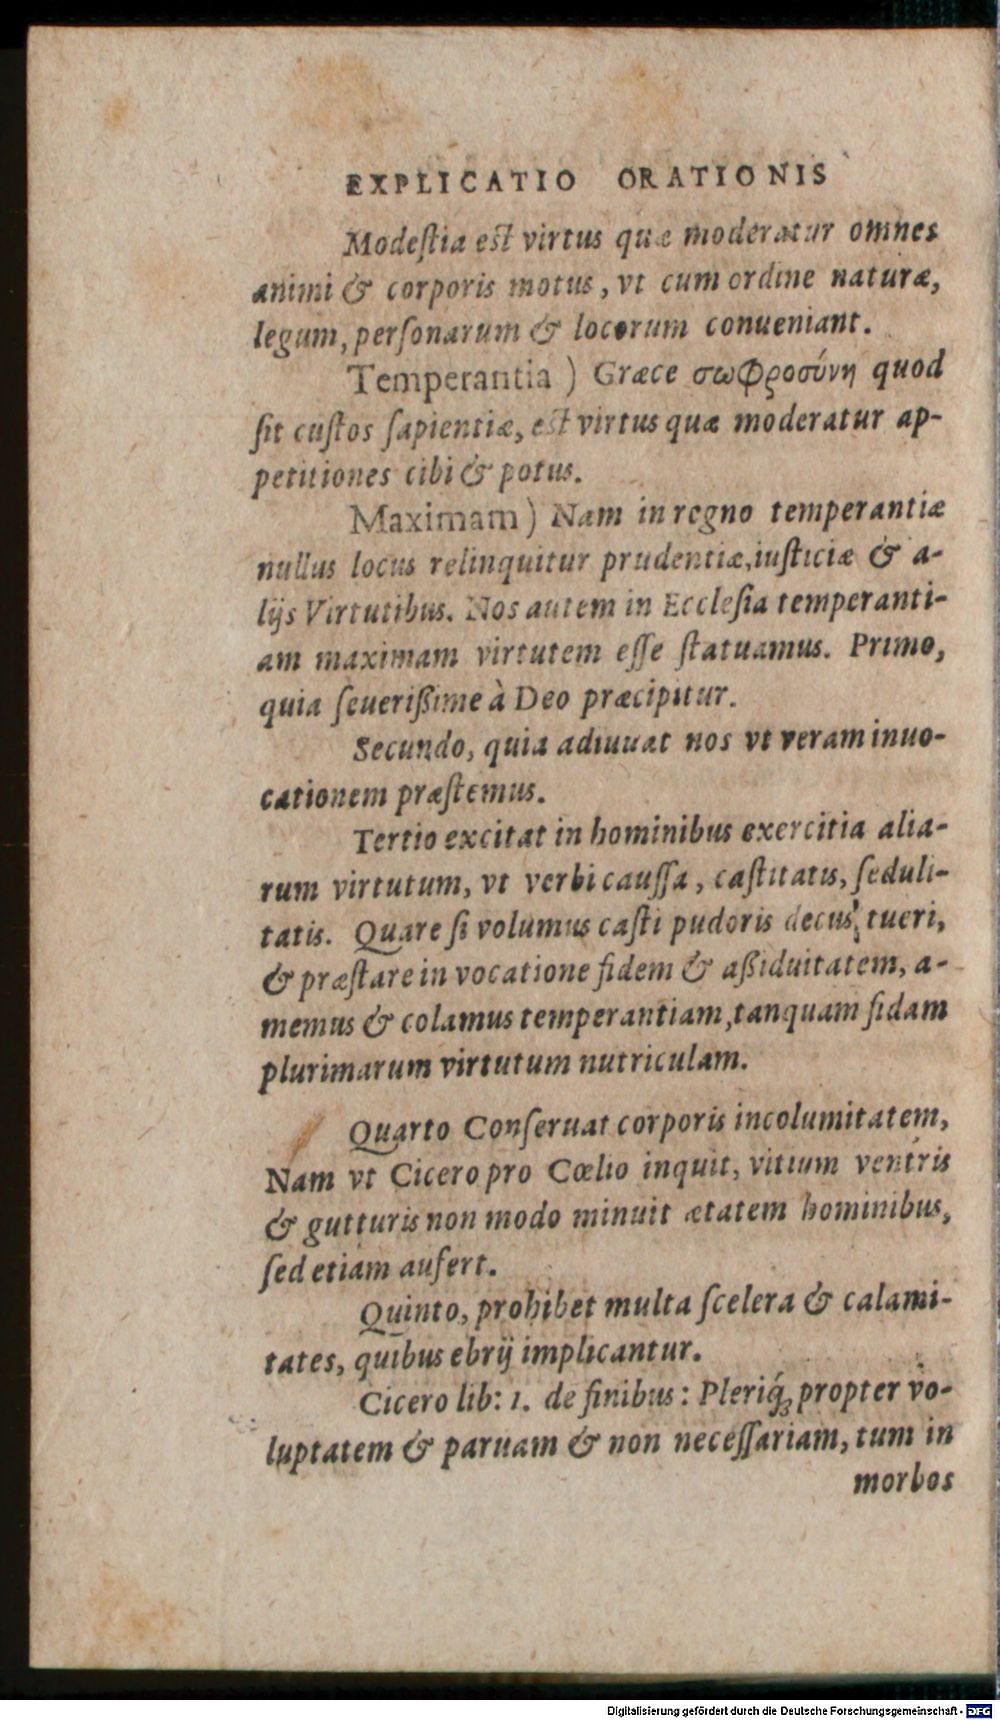 EXPLICATIO ORATIONIS
Modeſtia est virtus quæ moderatur omnes
animi & corporis motus, vt cum ordine naturæ,
legum, perſonarum & locorum conueniant.
Temperantia ) Græce σωφροσύνη quod
ſit cuſtos ſapientiæ, est virtus quæ moderatur ap-
petitiones cibi & potus.
Maximam ) Nam in regno temperantiæ
nullus locus relinquitur prudentiæ, iuſticiæ & a-
lijs Virtutibus. Nos autem in Eccleſia temperanti-
am maximam virtutem eſſe ſtatuamus. Primo,
quia ſeuerißime à Deo præcipitur.
Secundo, quia adiuuat nos vt veram inuo-
cationem præſtemus.
Tertio excitat in hominibus exercitia alia-
rum virtutum, vt verbi cauſſa, caſtitatis, ſeduli-
tatis. Quare ſi volumus caſti pudoris decus tueri,
& præſtare in vocatione fidem & aßiduitatem, a-
memus & colamus temperantiam, tanquam fidam
plurimarum virtutum nutriculam.
Quarto Conſeruat corporis incolumitatem,
Nam vt Cicero pro Cœlio inquit, vitium ventris
& gutturis non modo minuit ætatem hominibus,
ſed etiam aufert.
Quinto, prohibet multa ſcelera & calami-
tates, quibus ebrij implicantur.
Cicero lib: 1. de finibus: Pleriq́ꝫ propter vo-
luptatem & paruam & non neceſſariam, tum in
morbos
Digitalisierung gefördert durch die Deutsche Forschungsgemeinschaft - DFG